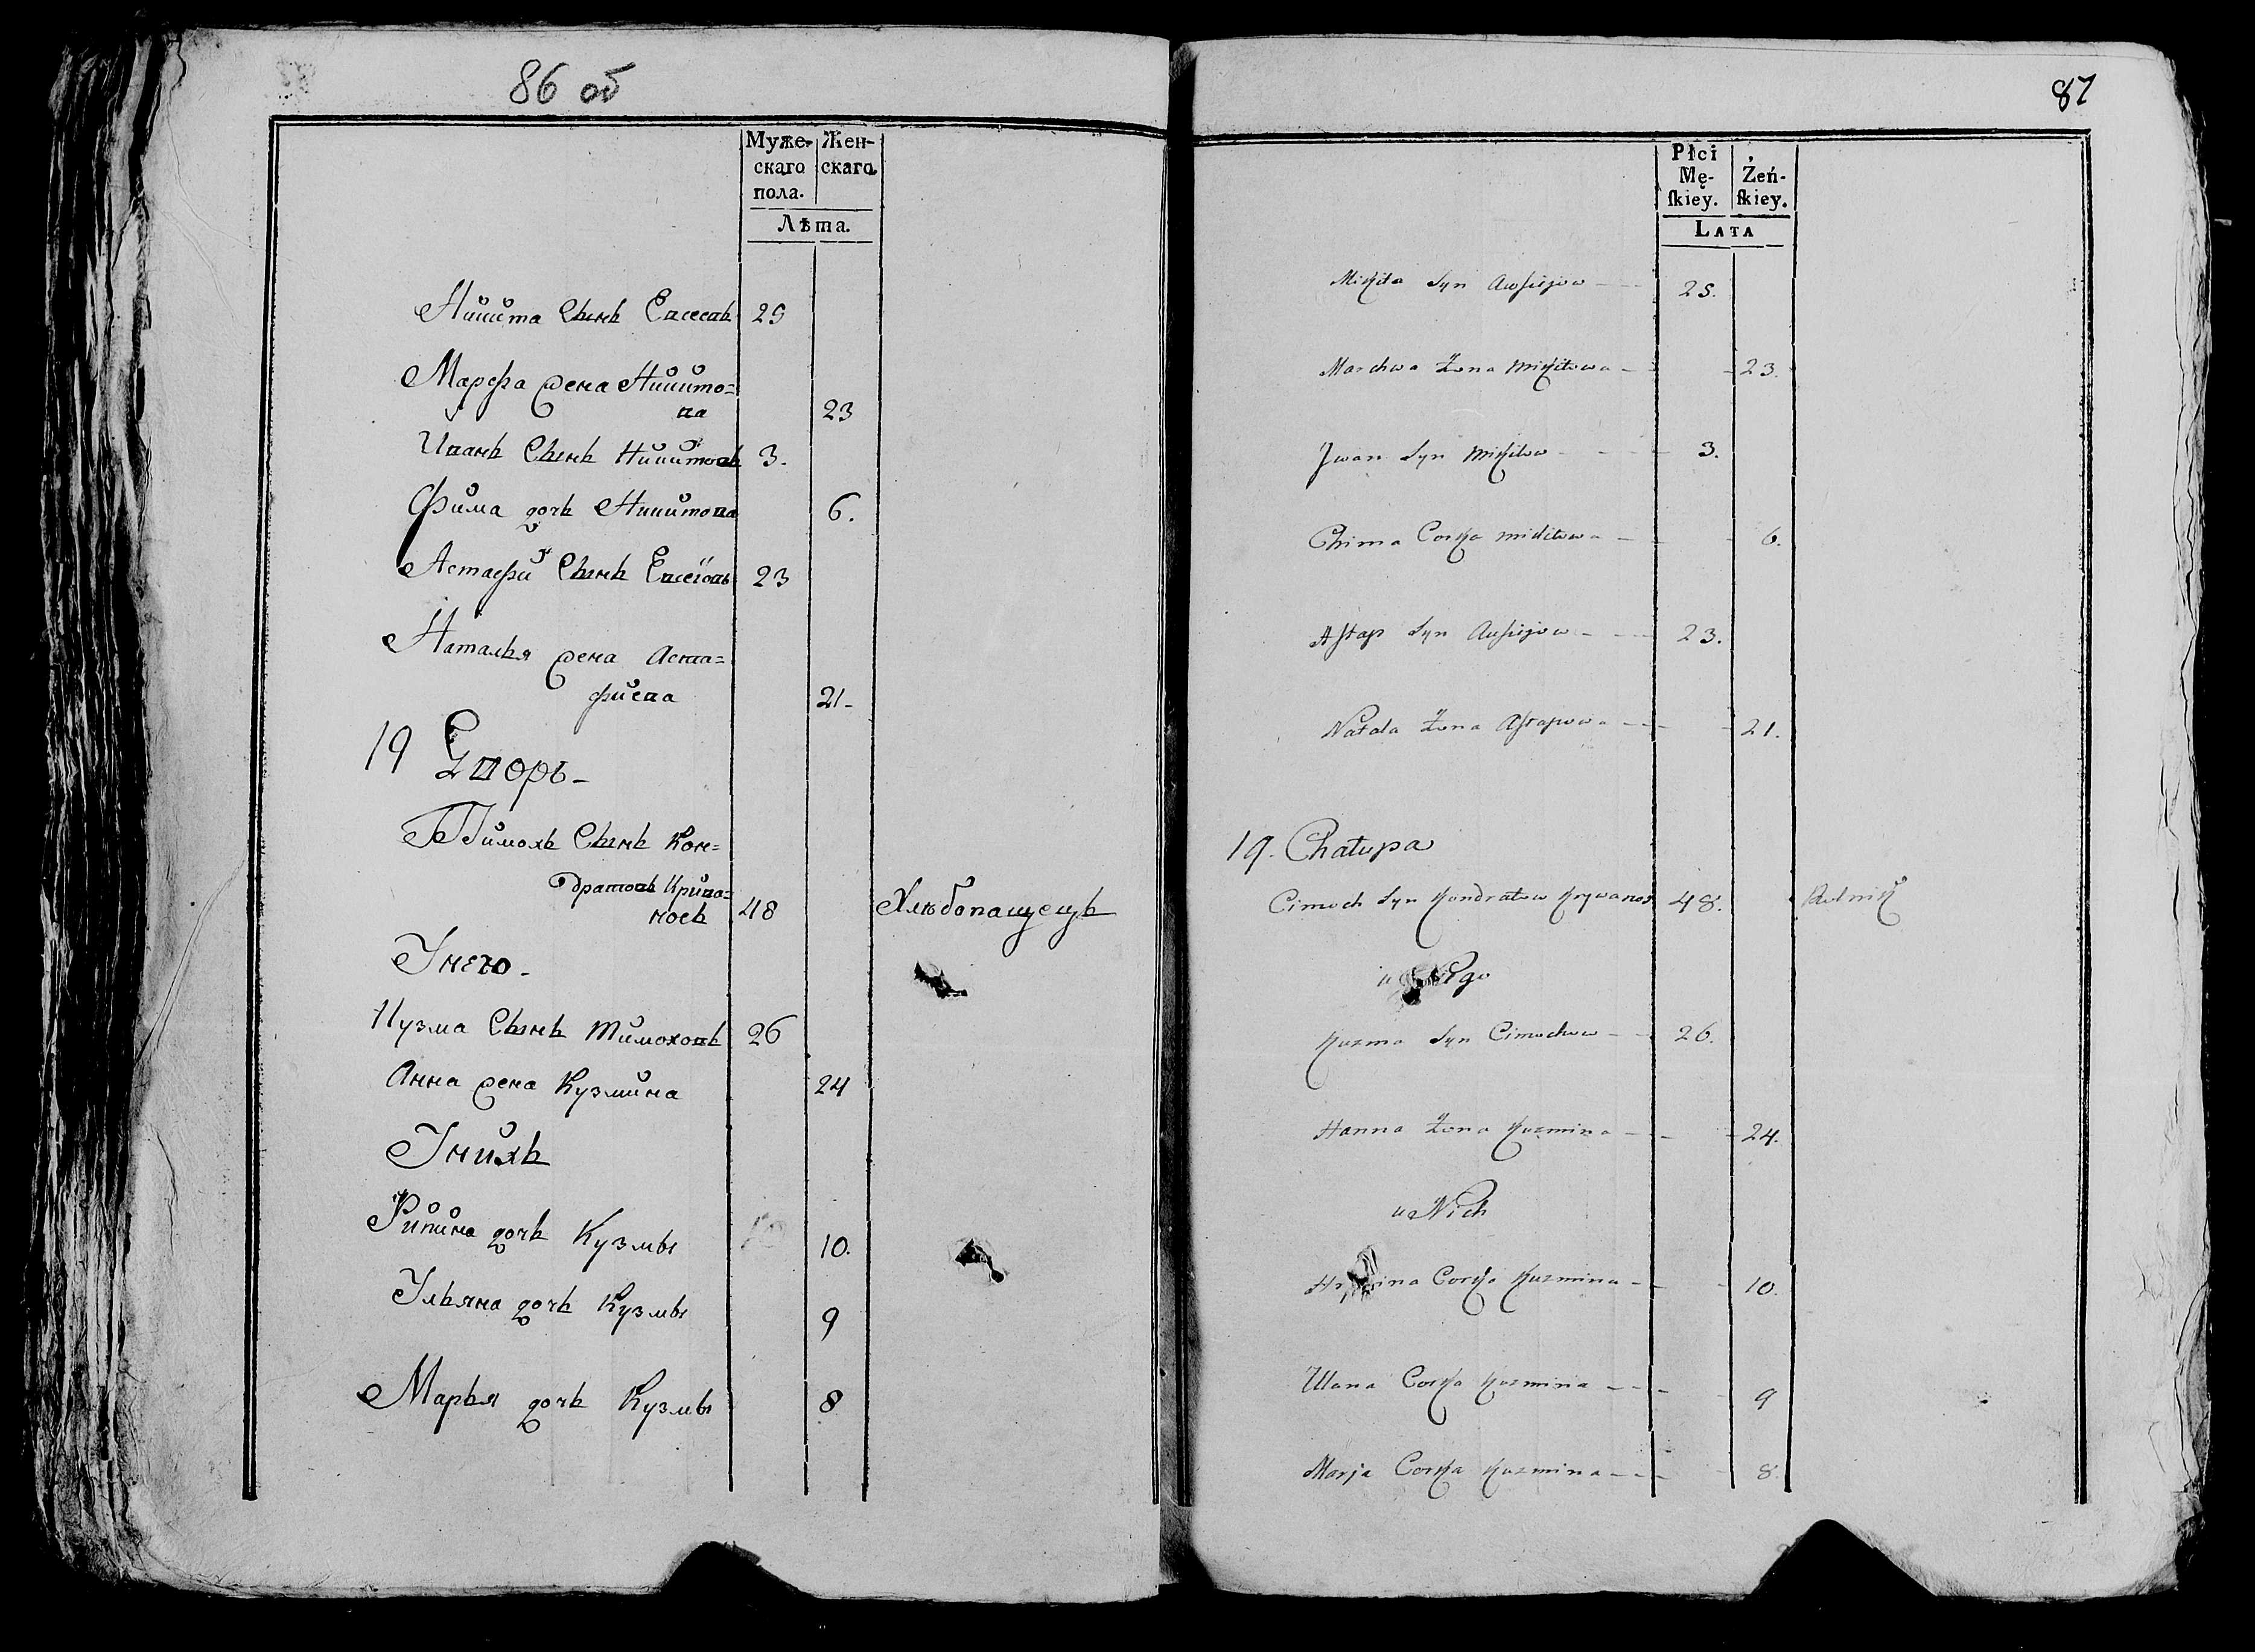 86 об
Муже-
скаго
пола.
Жен-
скаго.
Лѣта.
Никита Сынъ Евсеевъ 25
Марфа жена Никито=
ва 23
Иванъ Сынъ Никитовъ 3.
Фима дочь Никитова 6.
Астафій Сынъ Евсеіовъ 23
Наталья жена Аста=
фиева 21-
19 Дворъ-
Тимохъ Сынъ Кон=
дратовъ Крива=
носъ 48 Хлѣбопащецъ
Унего-
Кузма Сынъ Тимоховъ 26
Анна жена Кузмина 24
Унихъ
Рипина дочь Кузмы 10.
Ульяна дочь Кузмы 9
Марья дочь Кузмы 8
87
Płci
Mę-
ſkiey.
Żeń-
ſkiey.
Lata
Mikita Syn Awsiejow 25.
Marchwa Żona Mikitowa 23.
Jwan Syn Mikitow 3.
Chima Corka Mikitowa 6.
Astap Syn Awsiejow 23.
Natala Żona Astapowa 21.
19. Chałupa
Cimoch Syn Kondratow Krywanos 48. Rolnik
u Niego
Kuzma Syn Cimochow 26.
Hanna Żona Kuzmina 24.
u Nich
Corka Kuzmina 10.
Ulana Corka Kuzmina 9
Marja Corka Kuzmina 8.